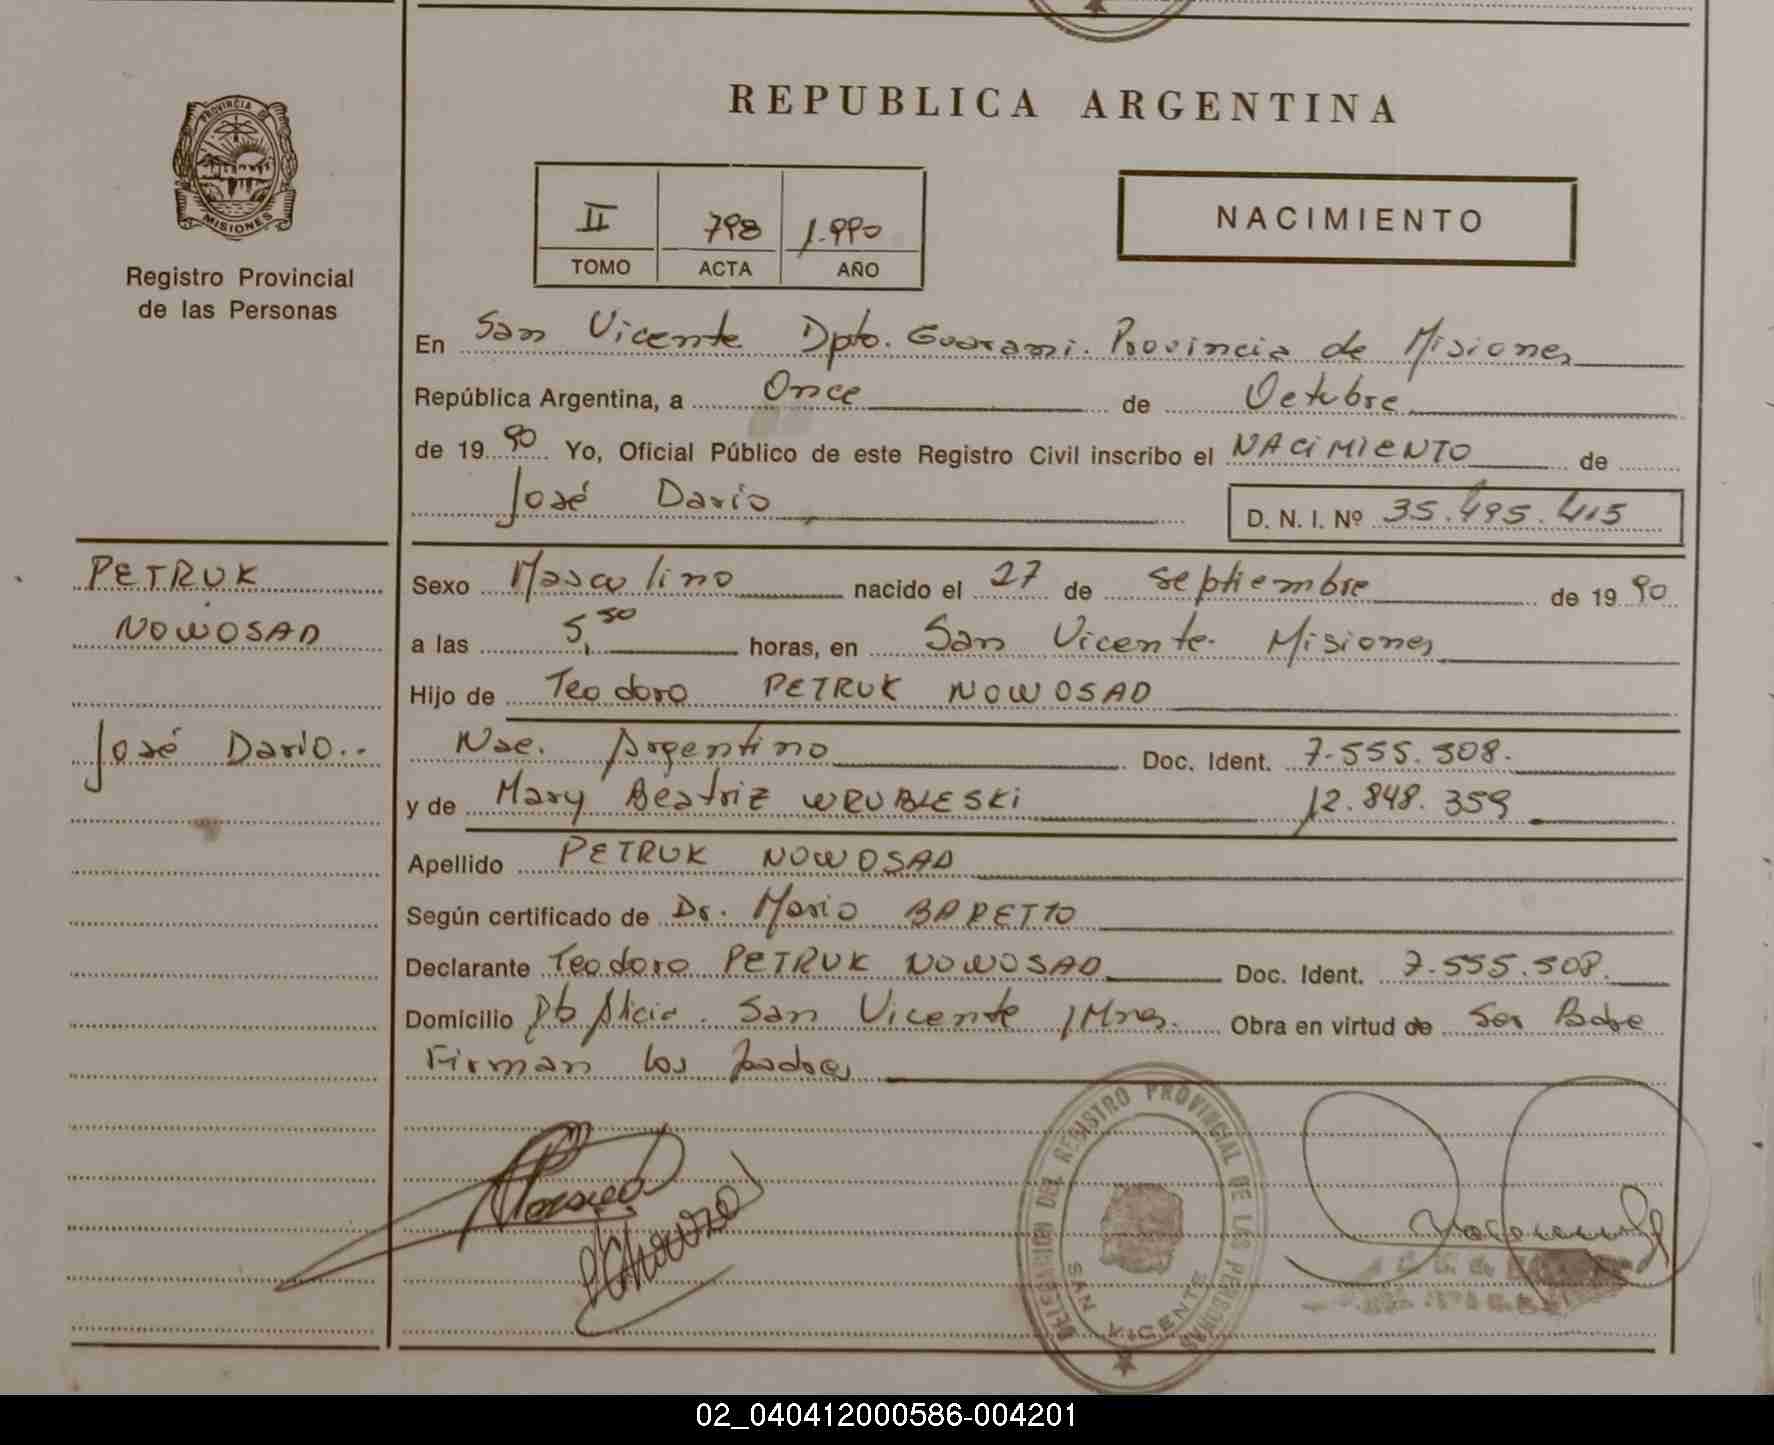 REPUBLICA ARGENTINA
PROVINCIA
MISIONES
Registro Provincial
de las Personas
II 798 1.990
TOMO ACTA AÑO
NACIMIENTO
En San Vicente Dpto. Guarani. Provincia de Misiones
República Argentina, a Once de Octubre
de 19 90 Yo, Oficial Público de este Registro Civil inscribo el NACIMIENTO de
José Dario D. N. I. Nº 35.495.415
PETRUK
NOWOSAD
José Dario..
Sexo Masculino nacido el 27 de septiembre de 19 90
a las 5,30 horas, en San Vicente. Misiones
Hijo de Teodoro PETRUK NOWOSAD
Nac. Argentino Doc. Ident. 7.555.508.
y de Mary Beatriz WRUBLESKi 12.848.359
Apellido PETRUK NOWOSAD
Según certificado de Dr. Mario BARETTO
Declarante Teodoro PETRUK NOWOSAD Doc. Ident. 7.555.508.
Domicilio Pb Alicia. San Vicente /Mnes. Obra en virtud de Ser Padre
Firman los Padres
DELEGACION DEL REGISTRO PROVINCIAL DE LAS PERSONAS
SAN VICENTE
02_040412000586-004201